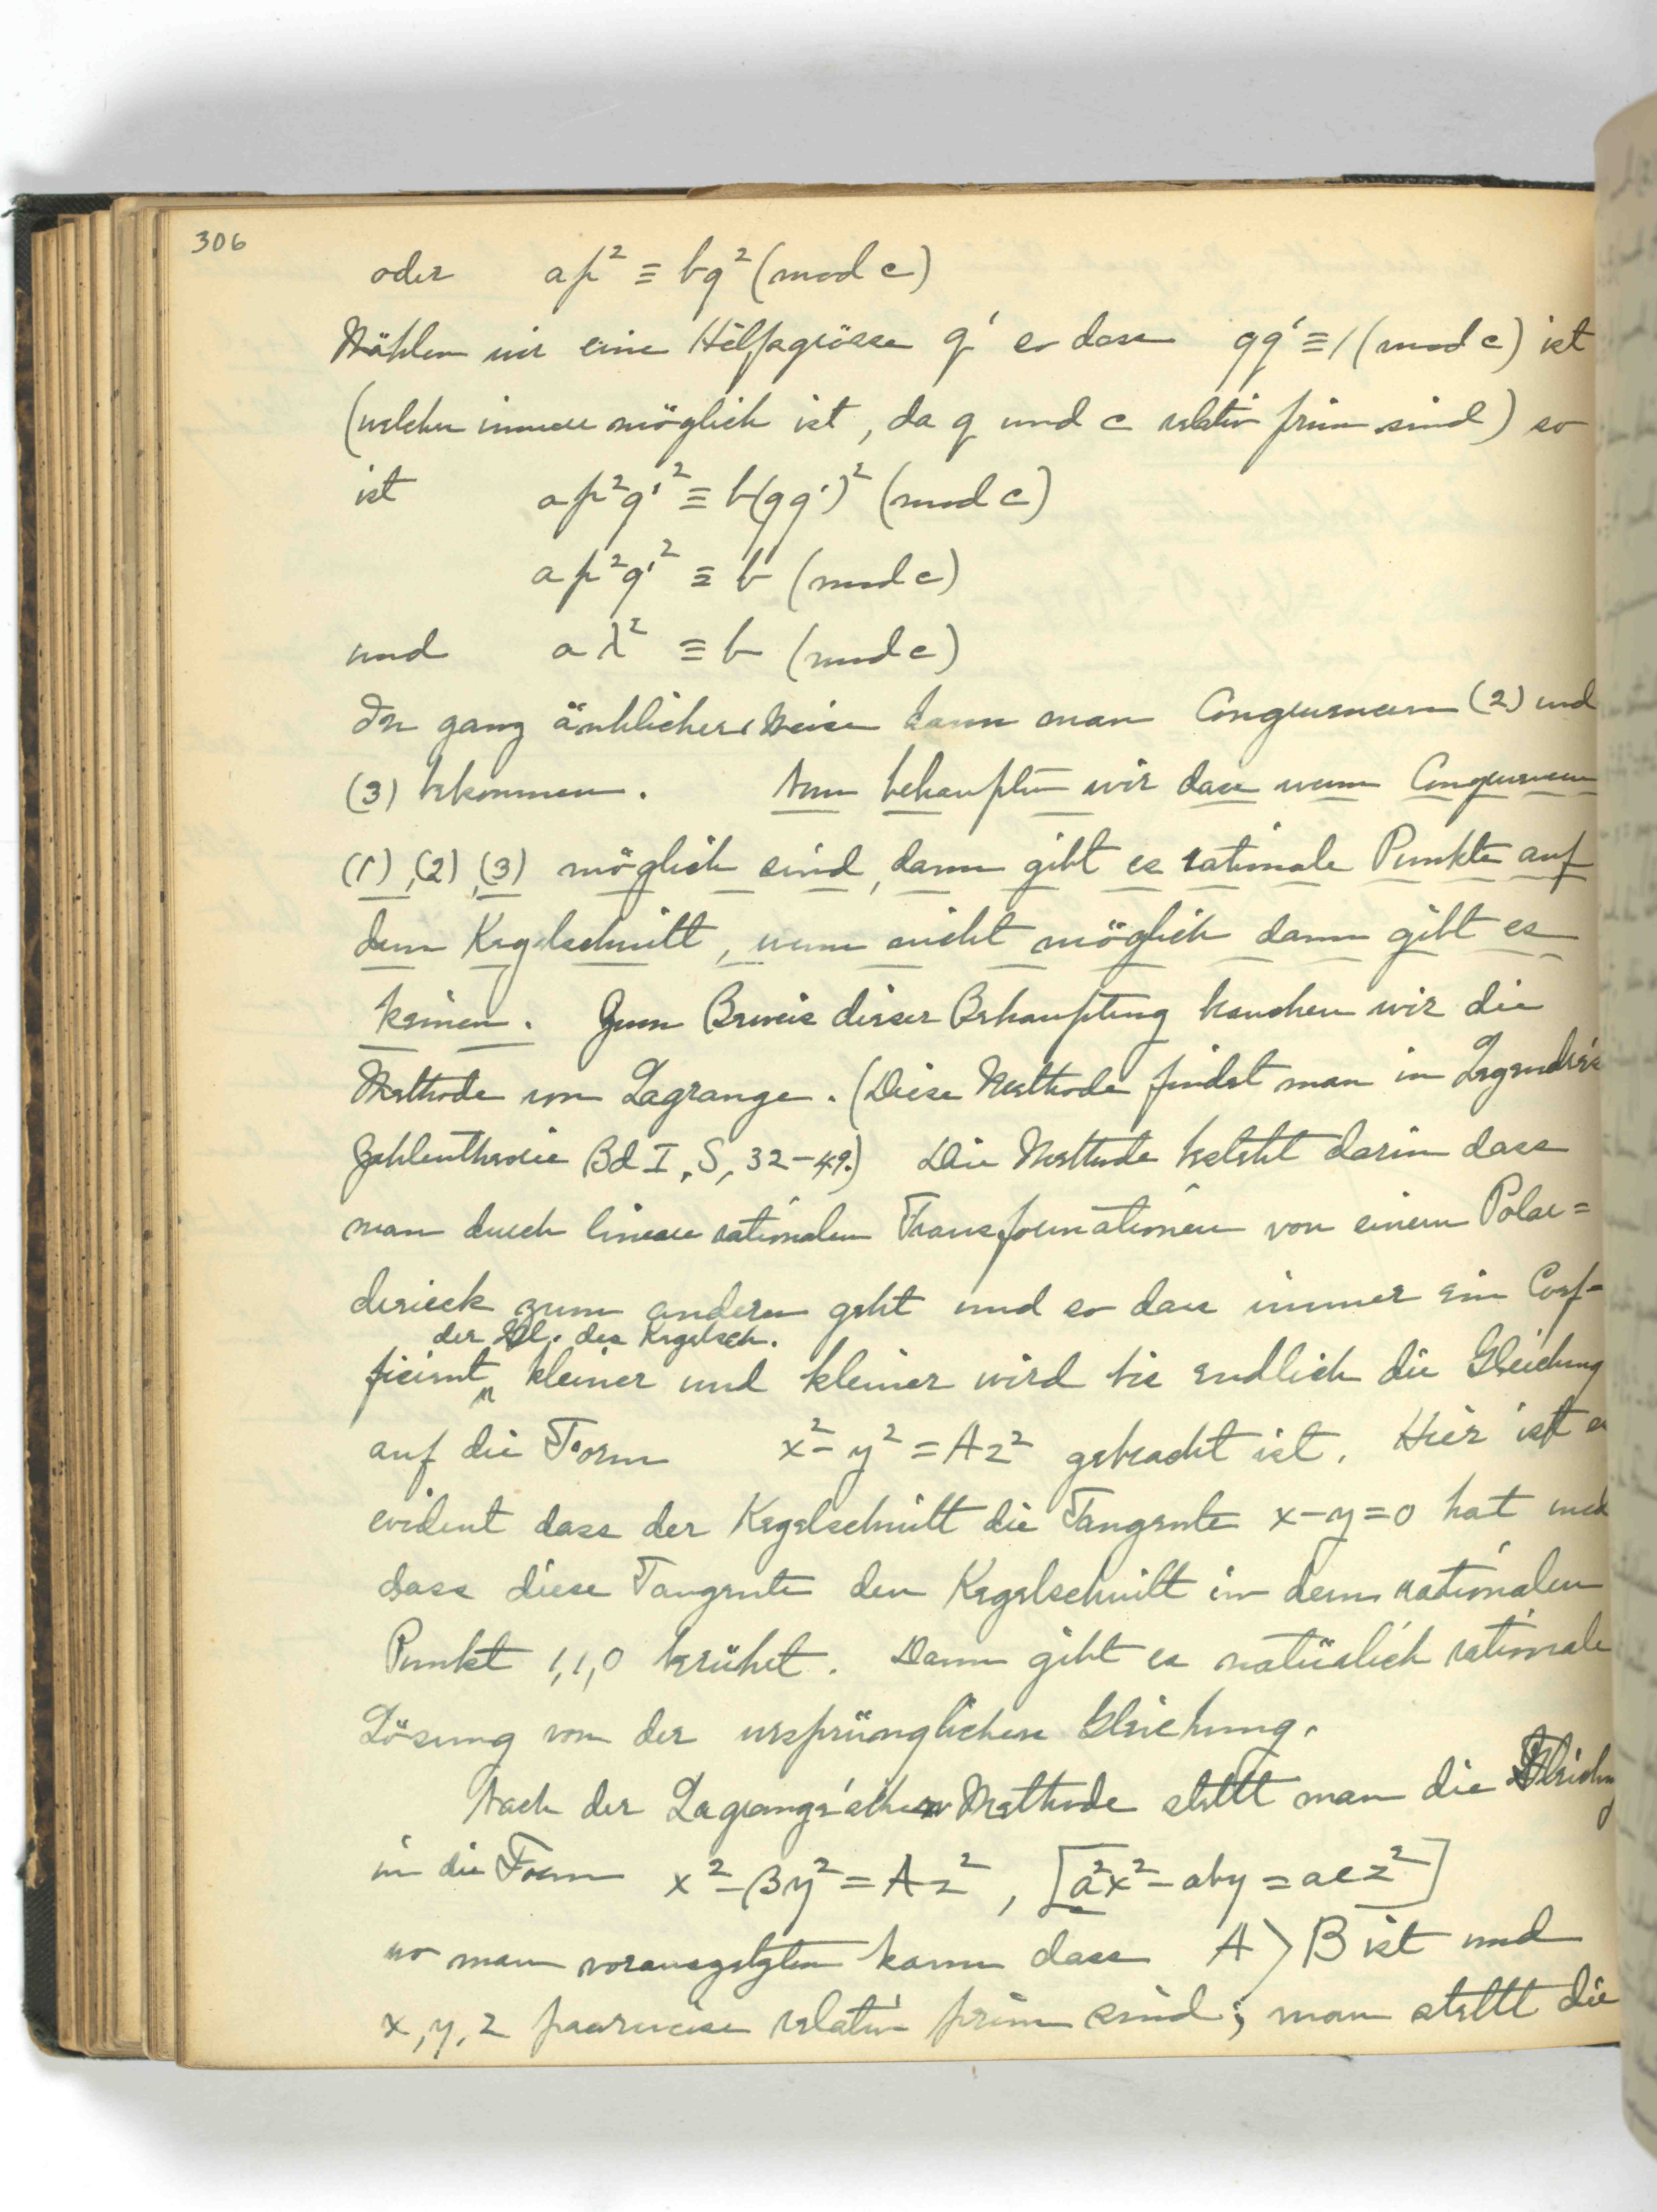 306
oder ap² ≡ bq² (mod c)
Wählen wir eine Hilfsgrösse q' so dass qq' ≡ 1 (mod c) ist
(welches immer möglich ist, da q und c relativ prim sind) so
ist ap²q'² ≡ b(qq')² (mod c)
ap²q'² ≡ b (mod c)
und aλ² ≡ b (mod c)
In ganz änhlicher Weise kann man Congruenzen (2) und
(3) bekommen. Nun behaupten wir dass wenn Congruenzen
(1), (2), (3) möglich sind, dann gibt es rationale Punkte auf
dem Kegelschnitt, wenn nicht möglich dann gibt es
keinen. Zum Beweis dieser Behauptung brauchen wir die
Methode von Lagrange. (Diese Methode findet man in Legendre's
Zahlentheorie Bd I, S, 32-49.) Die Methode besteht darin dass
man durch lineare rationalen Transformationen von einem Polar=
dreieck zum anderen geht und so dass immer ein Coef-
der Gl. des Kegelsch.
ficient kleiner und kleiner wird bis endlich die Gleichung
auf die Form x² - y² = Az² gebracht ist. Hier ist es
evident dass der Kegelschnitt die Tangente x-y=0 hat und
dass diese Tangente den Kegelschnitt in dem rationalen
Punkt 1,1,0 berührt. Dann gibt es natürlich rationale
Lösung von der ursprünglichen Gleichung.
Nach der Lagrange'schen Methode stellt man die Gleichung
in die Form x² - By² = Az², [a²x² - aby = acz²]
wo man voraussetzen kann dass A > B ist und
x, y, z paarweise relativ prim sind; man stellt die